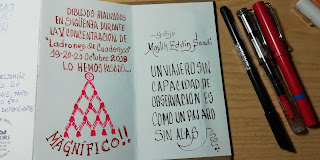 DIBUJOS REALIZADOS
EN SIGÜENZA DURANTE
LA V CONCENTRACIÓN DE
"Ladrones de Cuadernos"
19-20-21 Octubre 2018
LO HEMOS PASADO....
MAGNÍFICO!!
dijo
Moslih Eddin Saadi
UN VIAJERO SIN
CAPACIDAD DE
OBSERVACIÓN ES
COMO UN PÁJARO
SIN ALAS